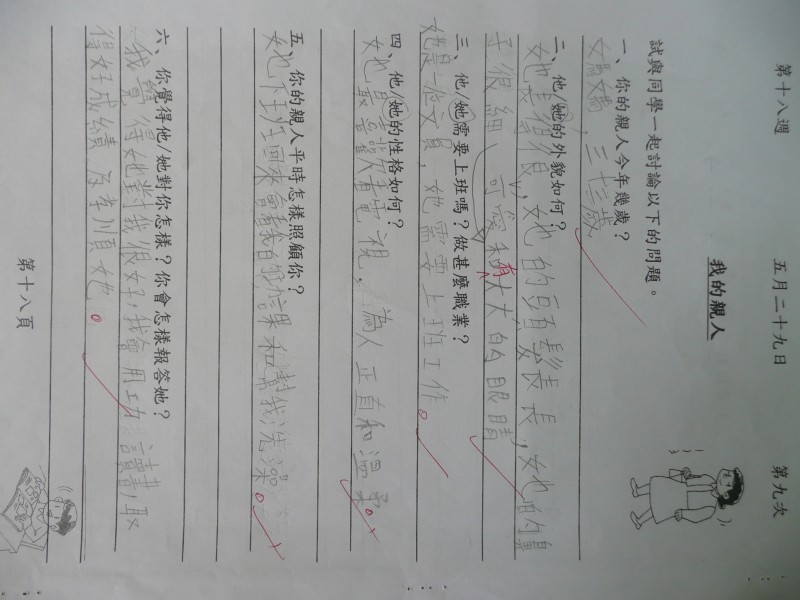 第十八週 五月二十九日 第九次
我的親人
試與同學一起討論以下的問題。
一、你的親人今年幾歲？
媽媽，三十三歲
二、他/她的外貌如何？
她的頭髮長長，她的鼻
子很細，可愛和有大大的眼睛
三、他/她需要上班嗎？做甚麼職業？
她是一位文員，她需要上班工作。
四、他/她的性格如何？
她最喜歡看電視，為人正直和溫柔。
五、你的親人平時怎樣照顧你？
她下班回來會我的功課和幫我洗澡。
六、你覺得他/她對你怎樣？你會怎樣報答她？
我覺得她對我很好，我會用功讀書，取
得好成績及孝順她。
第十八頁